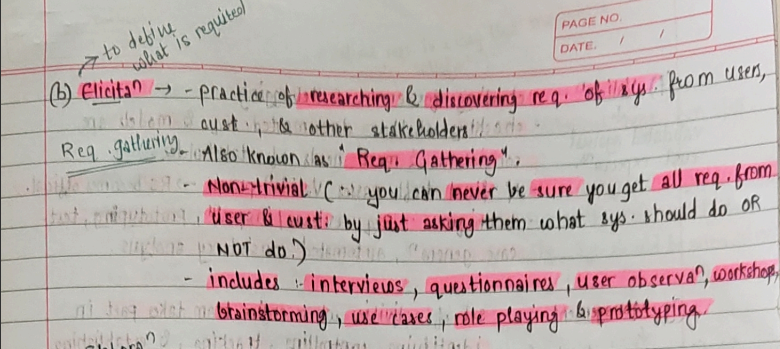 PAGE NO.
DATE. / /
to define
what is required
(b) Elicitaⁿ → - practice of researching & discovering req. of sys. from users,
cust., & other stakeholders.
Req. gathering
- Also known as "Req. Gathering".
- Non-trivial (∵ you can never be sure you get all req. from
user & cust. by just asking them what sys. should do OR
NOT do.)
- includes :- interviews, questionnaires, user observaⁿ, workshop,
brainstorming, use cases, role playing & prototyping.